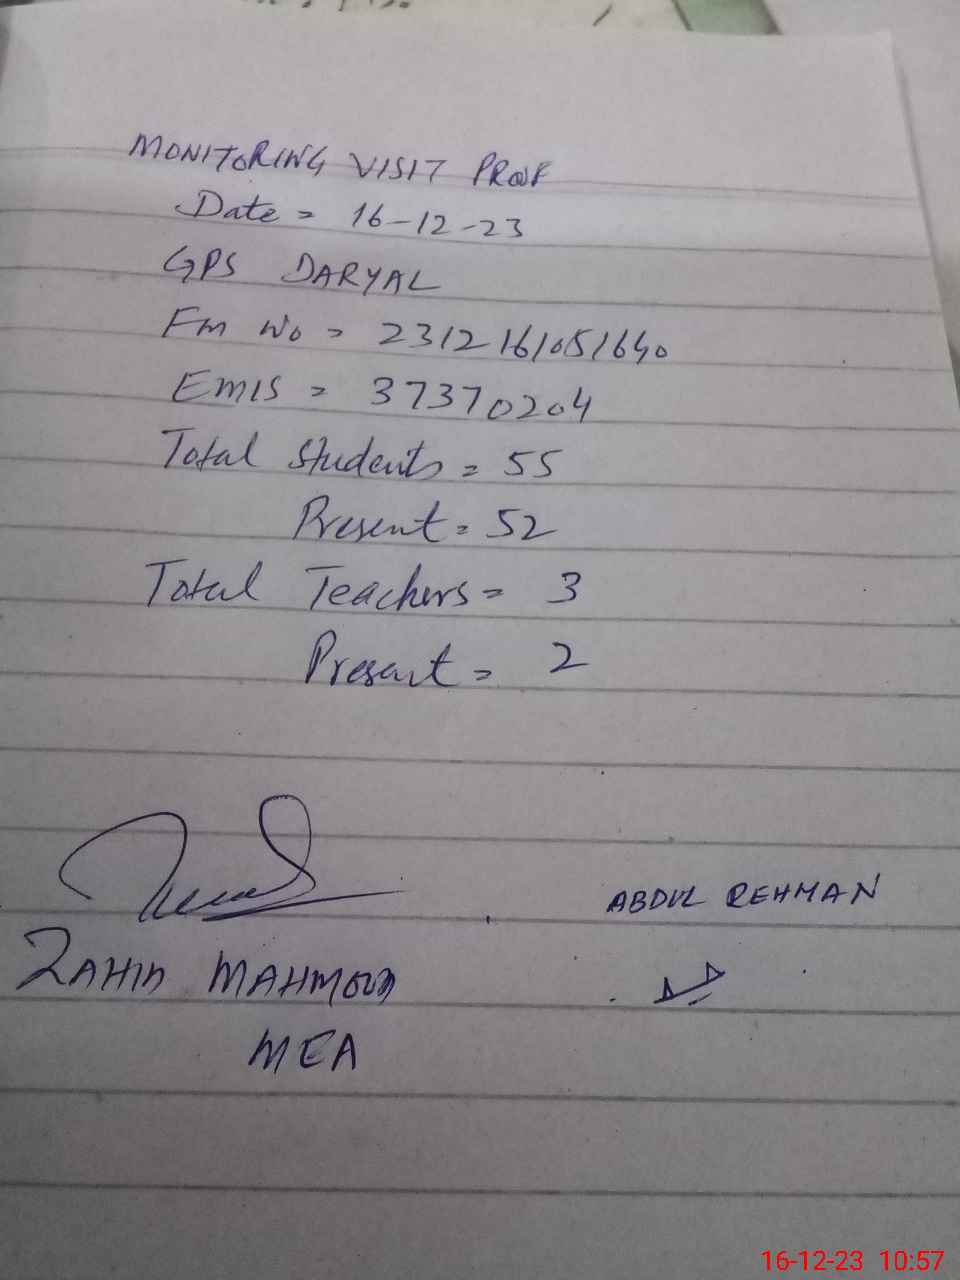 MONITORING VISIT PROOF
Date = 16-12-23
GPS DARYAL
Fm No = 2312161051640
EMIS = 37370204
Total Students = 55
Present = 52
Total Teachers = 3
Present = 2
ABDUL REHMAN
ZAHID MAHMOOD
MEA
16-12-23 10:57